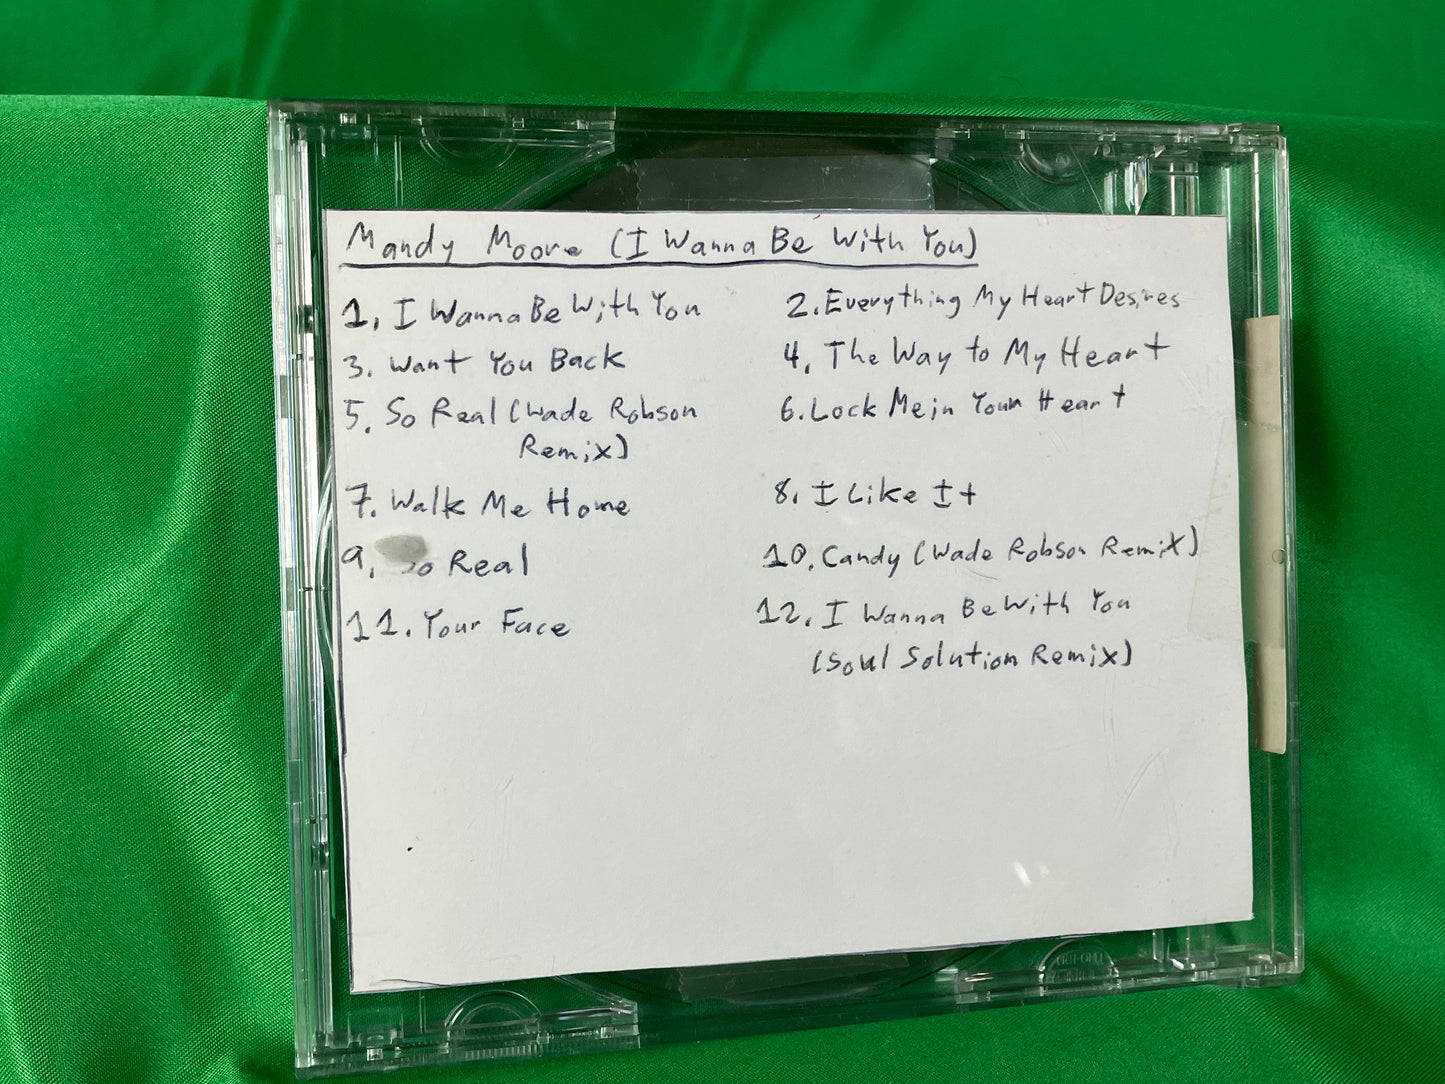 Mandy Moore (I Wanna Be With You)
1. I Wanna Be With You
2. Everything My Heart Desires
3. Want You Back
4. The Way to My Heart
5. So Real (Wade Robson
Remix)
6. Lock Me in Your Heart
7. Walk Me Home
8. I Like It
9. So Real
10. Candy (Wade Robson Remix)
11. Your Face
12. I Wanna Be With You
(Soul Solution Remix)